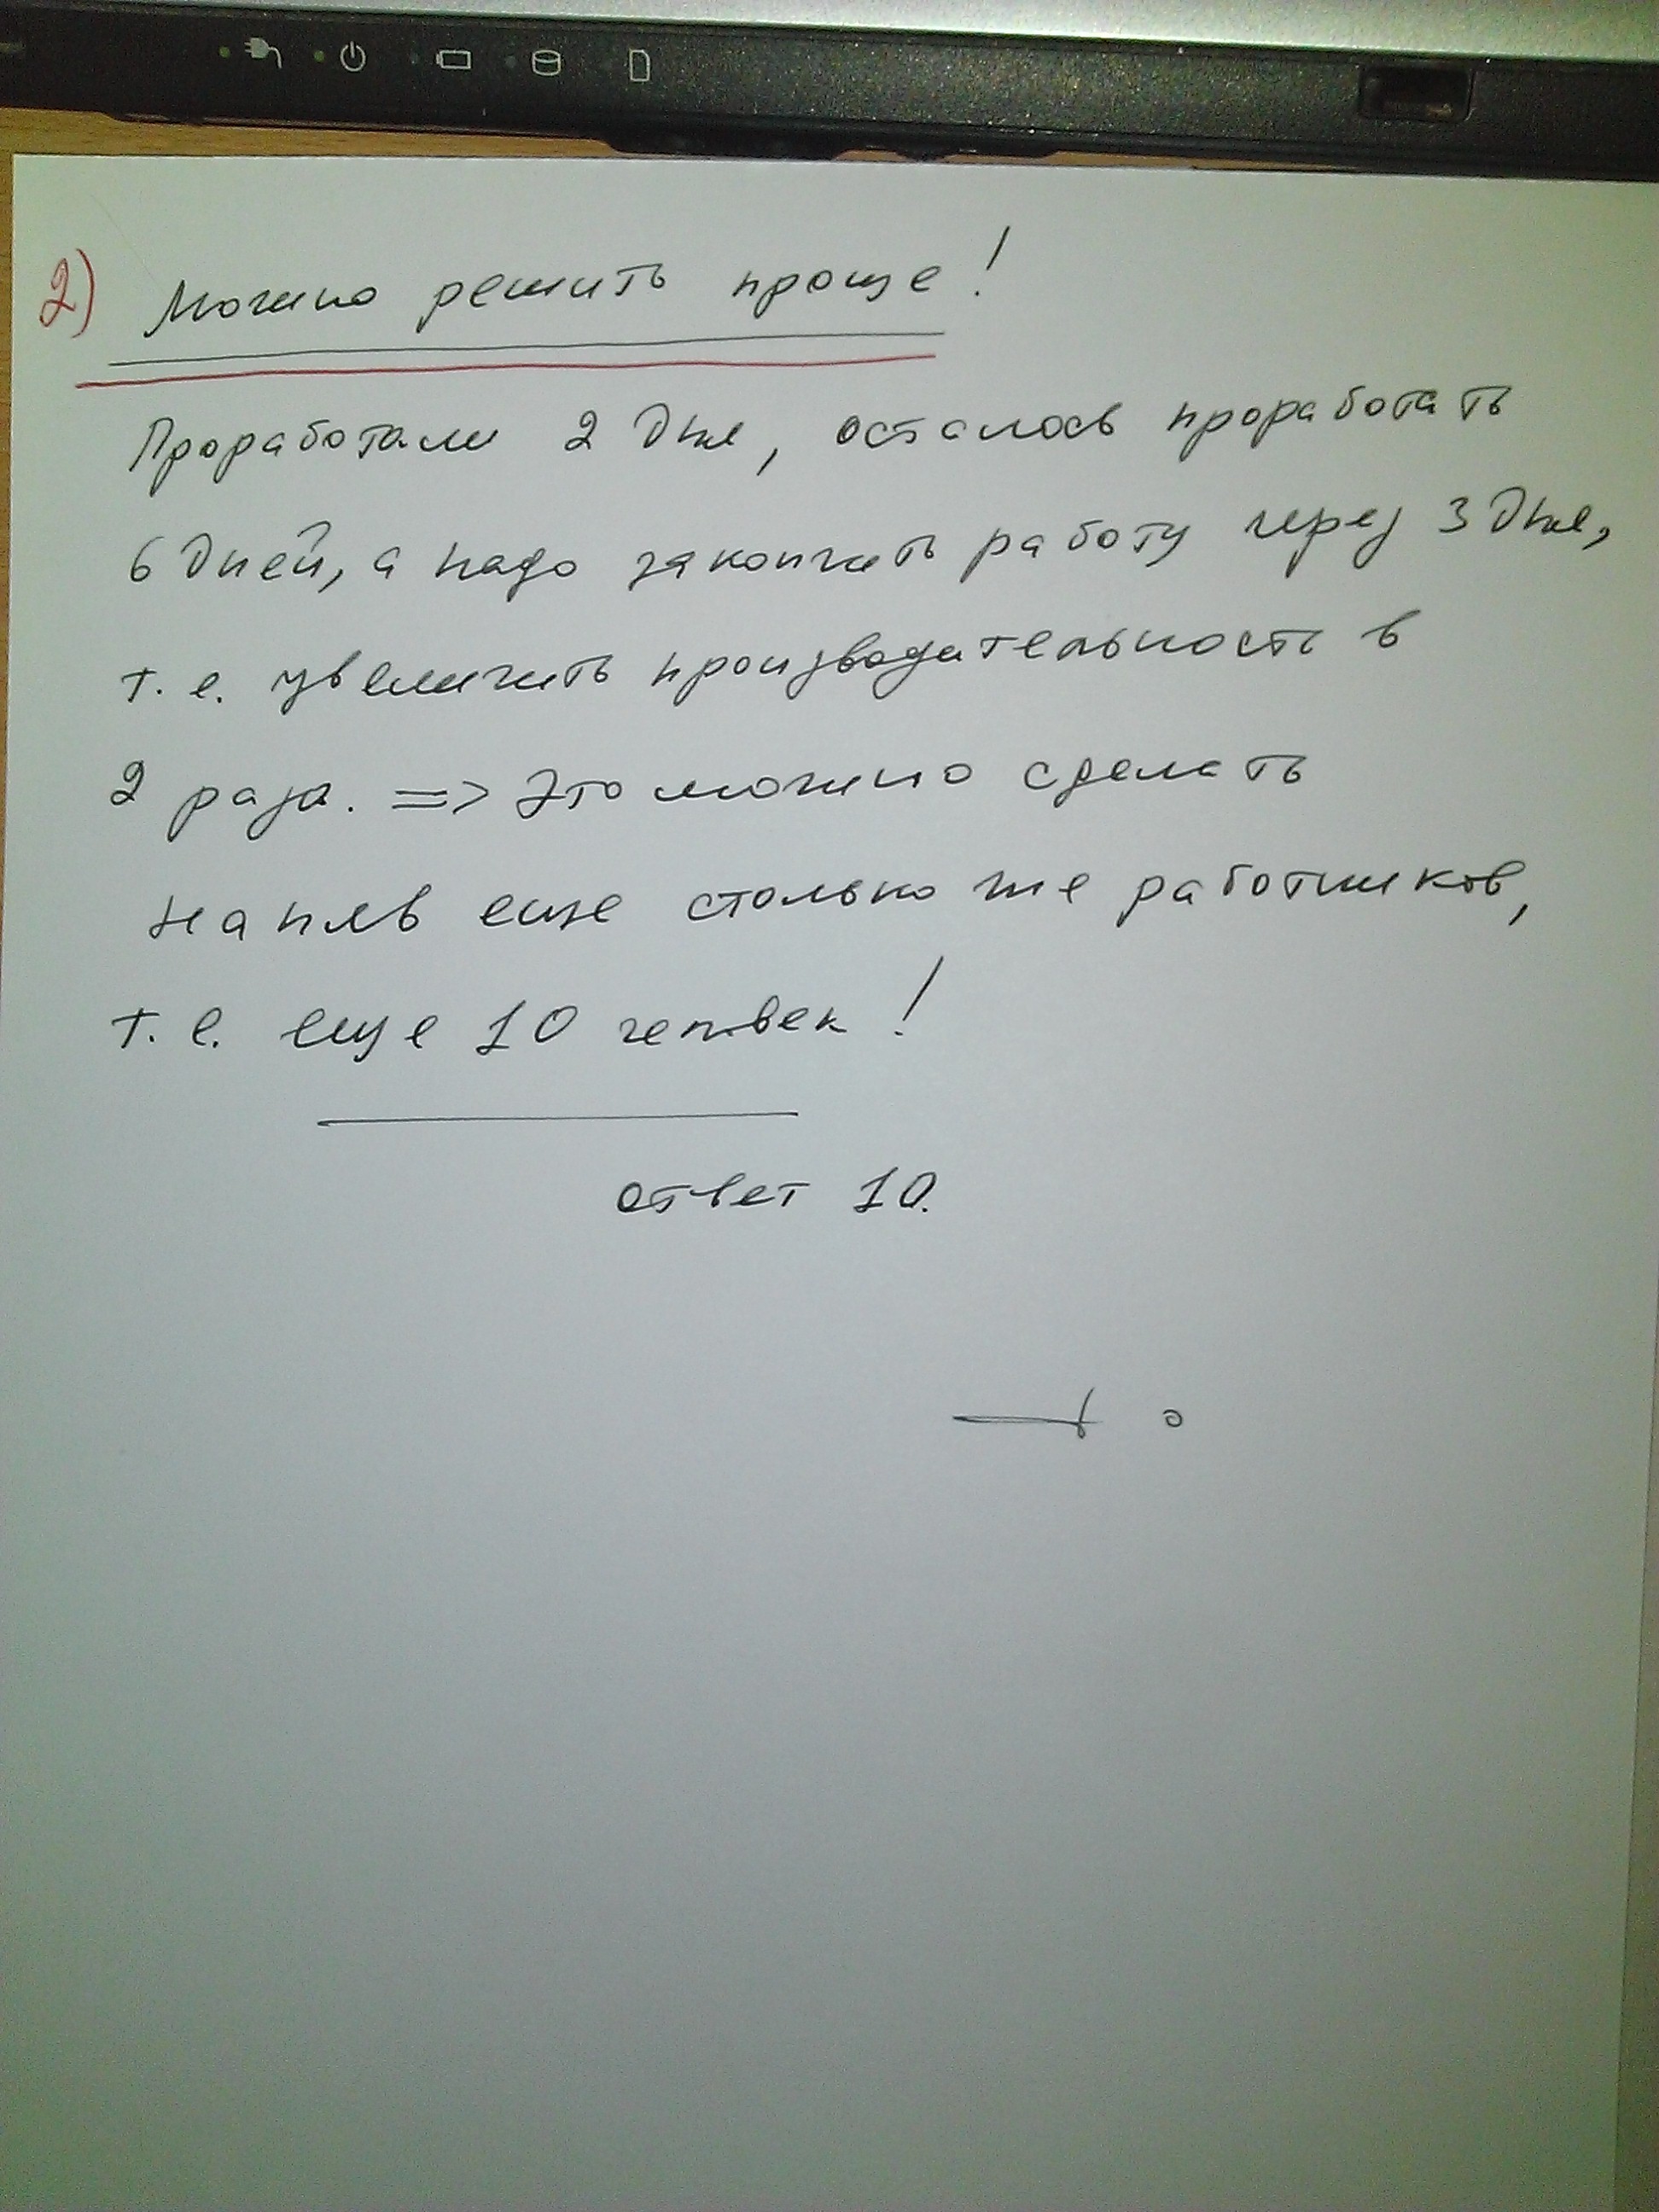 2) Можно решить проще!
Проработали 2 дня, осталось проработать
6 дней, а надо закончить работу через 3 дня,
т.е. увеличить производительность в
2 раза. => Это можно сделать
наняв еще столько же работников,
т.е. еще 10 человек!
ответ 10.